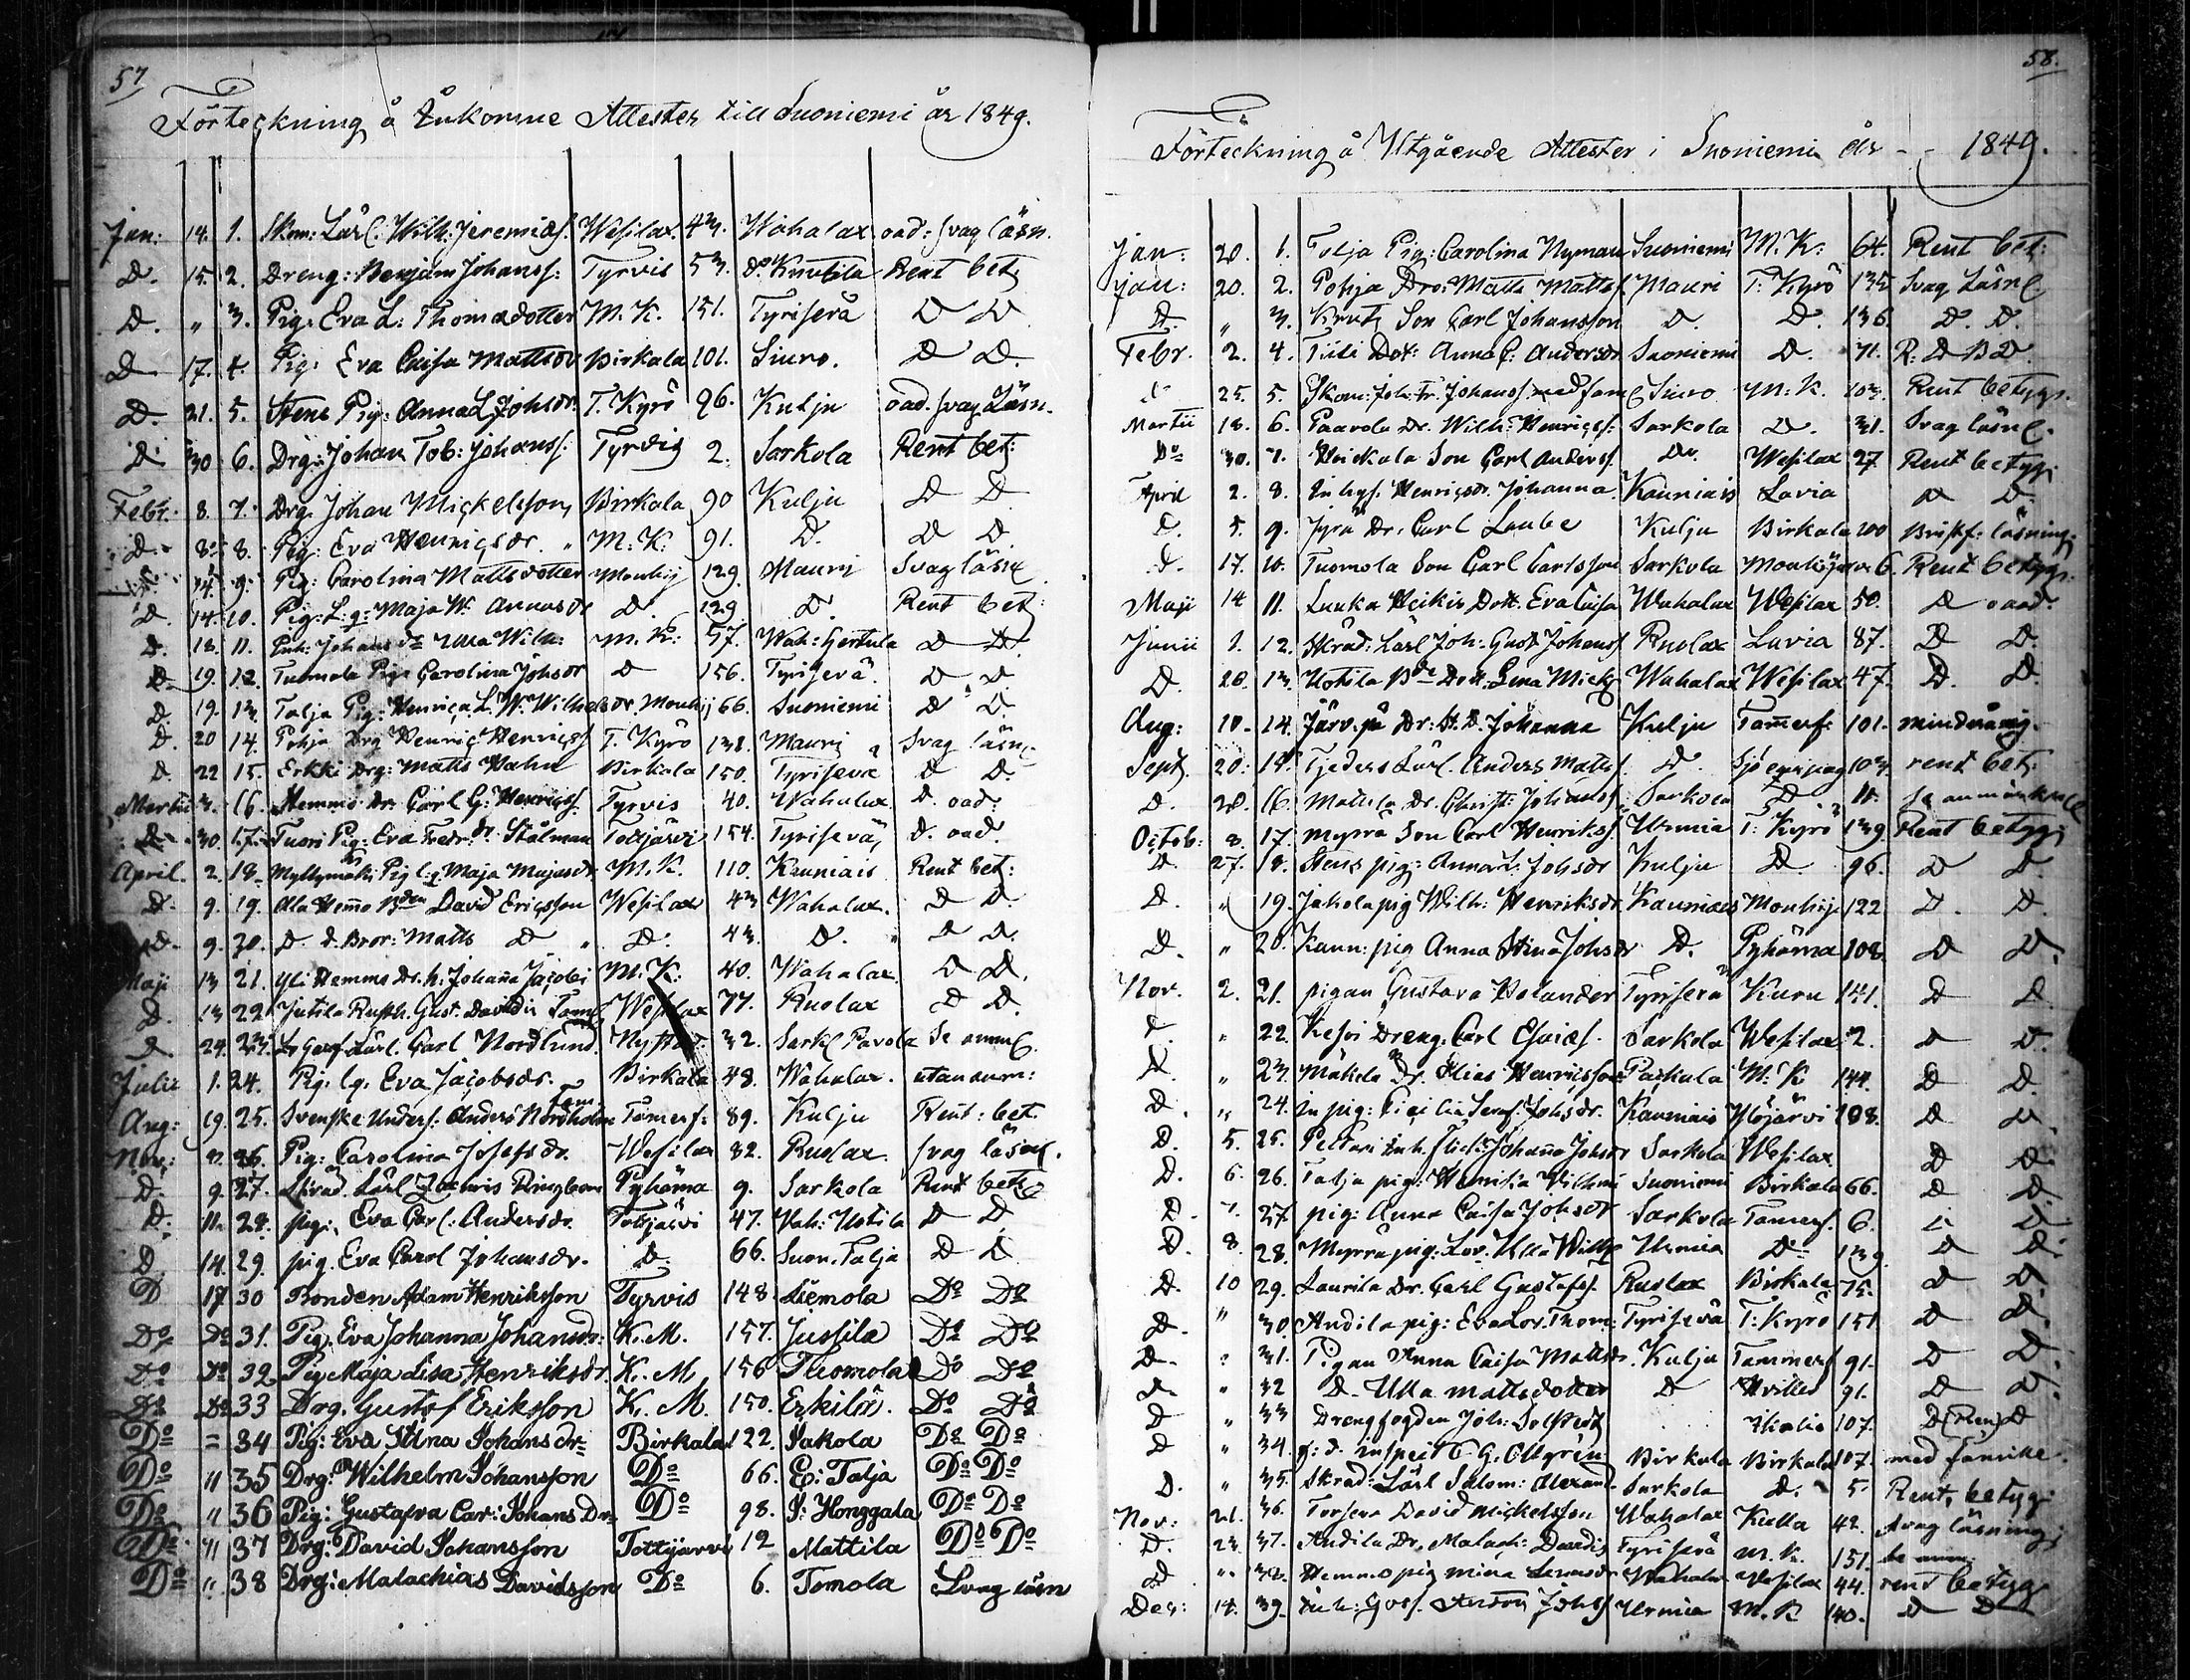 57
Förteckning å Inkomne Attester till Suoniemi år 1849.
Jan: 14. 1. Skom: Lärl: Wilh: Jeremiæs. Wesilax. 43. Wahalax oad: svag läsn.
D. 15. 2. Dreng: Benjam Johanss: Tyrvis 53. Do Knutila Rent bet
D. " 3. Pig: Eva L: Thomædotter M. K. 151. Tyriseva D D
D 17. 4. Pig: Eva Caisa Mattsdr Birkala 101. Siuro. D D.
D. 21. 5. Stens Pig: Anna L Johsdr T. Kyrö 96. Kulju oad. svag Läsn.
D 30 6. Drg: Johan Tob: Johanss: Tyrvis 2. Sarkola Rent bet:
Febr. 8. 7. Drg. Johan Mickelsson, Birkala 90 Kulju D D
D. 8. 8. Pig: Eva Henricsdr. " M. K: 91. D. D D
14. 9. Pig: Carolina Mattsdotter Mouhij 129. Mauri Svag läsn
D. 14. 10. Pig: L. q: Maja W. Annasdr D. 129 D. Rent bet:
D. 18. 11. Inh: Johansdr Ulla Wilh: M. K: 57. Wah: Gertula D D.
D. 19. 12. Tuomola Pig: Carolina Johsdr D 156. Tyrisevä. D D
D. 19. 13. Talja Pig: Henrica L. W. Wilhelmsdr. Mouhij 66. Suoniemi D D.
D. 20 14. Pohja Drg Henric Henricss T. Kyrö 138. Mauri Svag läsn
D. 22 15. Erkki Drg: Matts Hahn Birkala 150. Tyrisevä D D.
Martii 3. 16. Hemmo Dr. Carl G: Henricss. Tyrvis 40. Wahalax D. oad:
D. 30. 17. Tuori Pig: Eva Fredr: dr. Stålman Tottjärvi 154. Tyrisevä, D. oad.
April. 2. 18. Myllymäki Pig l: q. Maja Majasdr M. K. 110. Kauniais Rent bet:
D. 9. 19. Ala Hemmo Bden David Ericsson Wesilax 43 Wahalax. D D.
D. 9. 20. D. d. Bror: Matts D " D. 43. D. D D.
Maji 13 21. Yli Hemmo Dr. h. Johanna Jacobi M. K: 40. Wahalax D D.
D. 13 22. Jutila Rusth. Gust. Davidss Fam Wesilax 77. Ruolax D D.
D. 24. 23. Garf. Lärl. Carl Nordlund. Nystad. 32. Sarkl Pavola Se anm
Julii 1. 24. Pig. lq. Eva Jacobsdr. Birkala 48. Wahalax. utan anm:
Aug: 19. 25. Svenske Unders: Anders Nordholm Fam Tamerf: 89. Kulju Rent: bet.
Nov: 26. Pig: Carolina Josefsdr. Wesilax 82. Ruolax. svag läsn.
D. 9. 27. Skräd. Lärl Zachris Ringbom Pyhäma 9. Sarkola Rent bet
D. 11. 28. pig: Eva Carl: Andersdr. Tottjärvi 47. Wah: Uotila D D
D. 14. 29. pig. Eva Carol Johansdr. D. 66. Suon. Talja D D
D 17 30 Bonden Adam Henriksson Tyrvis 148. Liemola Do Do
Do Do 31. Pig. Eva Johanna Johansdr: K. M. 157. Jussila Do Do
Do Do 32 Pig Maja Lisa Henriksdr. K. M 156 Thomola Do Do
Do Do 33 Drg. Gustaf Eriksson K. M. 150. Erkilä. Do Do
Do = 34 Pig: Eva Stina Johansdr= Birkala 122. Jakola Do Do
Do " 35 Drg: Wilhelm Johansson Do 66. E: Talja Do Do
Do " 36 Pig: Gustafva Car: Johans Dr= Do 98. J: Honggala Do Do
Do " 37 Drg: David Johansson Tottijärvi 12 Mattila Do Do
Do " 38 Drg: Malachias Davidsson Do 6. Tomola Svag läsn
58.
Förteckning å Utgående Attester i Suoniemi år - - 1849.
Jan: 20. 1. Talja Pig: Carolina Nyman Suoniemi M. K: 64. Rent bet:
Jan: 20. 2. Pohja Dr: Matts Mattss Mauri T: Kyrö 135 Svag Läsn
D. " 3. Knuts Son Carl Johansson D. D. 136. D. D.
Febr. 2. 4. Tiili Dott: Anna C: Andersdr Suoniemi D. 71. R: D B D.
25. 5. Skom: Joh: Fr: Johanss med fam Siuro M: K. 103. Rent betyg.
Martii 18. 6. Paavola Dr. Wilh: Henricss: Sarkola D. 31. Svag läsn.
Do 30. 7. Heickala Son Carl Anderss. Do. Wesilax 27 Rent betyg
April 2. 8. Inhys. Henricsdr. Johanna. Kauniais Lavia D D.
D. 5. 9. Jyrä Dr. Carl Laube Kulju Birkala 200 Bristf: läsning
D. 17. 10. Tuomola Son Carl Carlsson Sarkola Mouhijärvi 6. Rent betyg:
Maji 14 11. Luuka Heikis Dott. Eva Caisa Wahalax Wesilax 50. D oad.
Junii 1. 12. Skräd: Lärl Joh: Gust Johanss Ruolax Lavia 87. D D.
D. 28. 13. Uotila Bde Dott. Lena Mick Wahalax Wesilax 47. D. D.
Aug: 10. 14. Järv. Dr: D. Johanna Kulju Tamerf: 101. minderårig.
Sept. 20. 15. Tjeders Lärl. Anders Matts D. 103 rent bet:
D. 28. 16. Mattila Dr. Christ: Johanss Sarkola D 11. Se anmärkn
Octob: 8. 17. Myrrä Son Carl Henrikss. Urmia T: Kyrö 139. Rent betyg
D. 27. 18. Stens pig: Anna L: Johsdr Kulju D 96. D D.
D. " 19. Jakola pig Wilh: Henriksdr Kauniais Mouhij 122 D. D.
D. " 20. Kaun: pig Anna Stina Johsdr D. Pyhäma 108. D D.
Nov. 2. 21. pigan Gustava Holander Tyrisevä Kuru 141. D D
" 22. Kesti Dreng. Carl Esaiæs. Sarkola Wesilax 2. D D.
D. " 23. Mäkela Dr. Elias Henricsson Packala M: K 144. D D.
D. " 24. In pig: Cicilia Seraf: Johsdr. Kauniais Ylöjärvi 108. D D.
D. 5. 25. Peltari Inh. Johanna Johsdr Sarkola Wesilax D D.
D. 6. 26. Talja pig: Henrika Wilhmi Suoniemi Birkala 66. D D
D. 7. 27. pig: Anna Caisa Johsdr Sarkola Tamerf. 6. D D
D. 8. 28. Myrrä pig: Lov. Ulla Wilh Urmia D 139. D D.
D. 10 29. Laurila Dr. Carl Gustafss. Ruolax Birkala 75. D D.
D. " 30. Andila pig: Eva Lov. Thom: Tyrisevä T: Kyrö 151 D D.
D. 31. Pigan Anna Caisa Mattsdr. Kulju Tammerf 91. D D.
D. " 32 D. Ulla mattsdotter D 91. D D.
D " 33 Drengfogden Joh: Ikalis 107. D (Ren) D
D " 34. f: d. Inspect G. Ollgrén Birkala Birkala 107. med familie.
D. " 35. Skräd: Lärl Salom: Alexand. Sarkola D. 5. Rent betyg
Nov: 21. 36. Torsera David Mickelsson Wahalax Kulla 42. svag läsning
D. 23. 37. Andila Dr. Malach: Davids Tyrisevä M. K. 151. Se anm:
D " 38. Hemmo pig mina Wahalax Wesilax 44. rent betyg
Dec: 14. 39. Johs Urmia M. K 140. D D